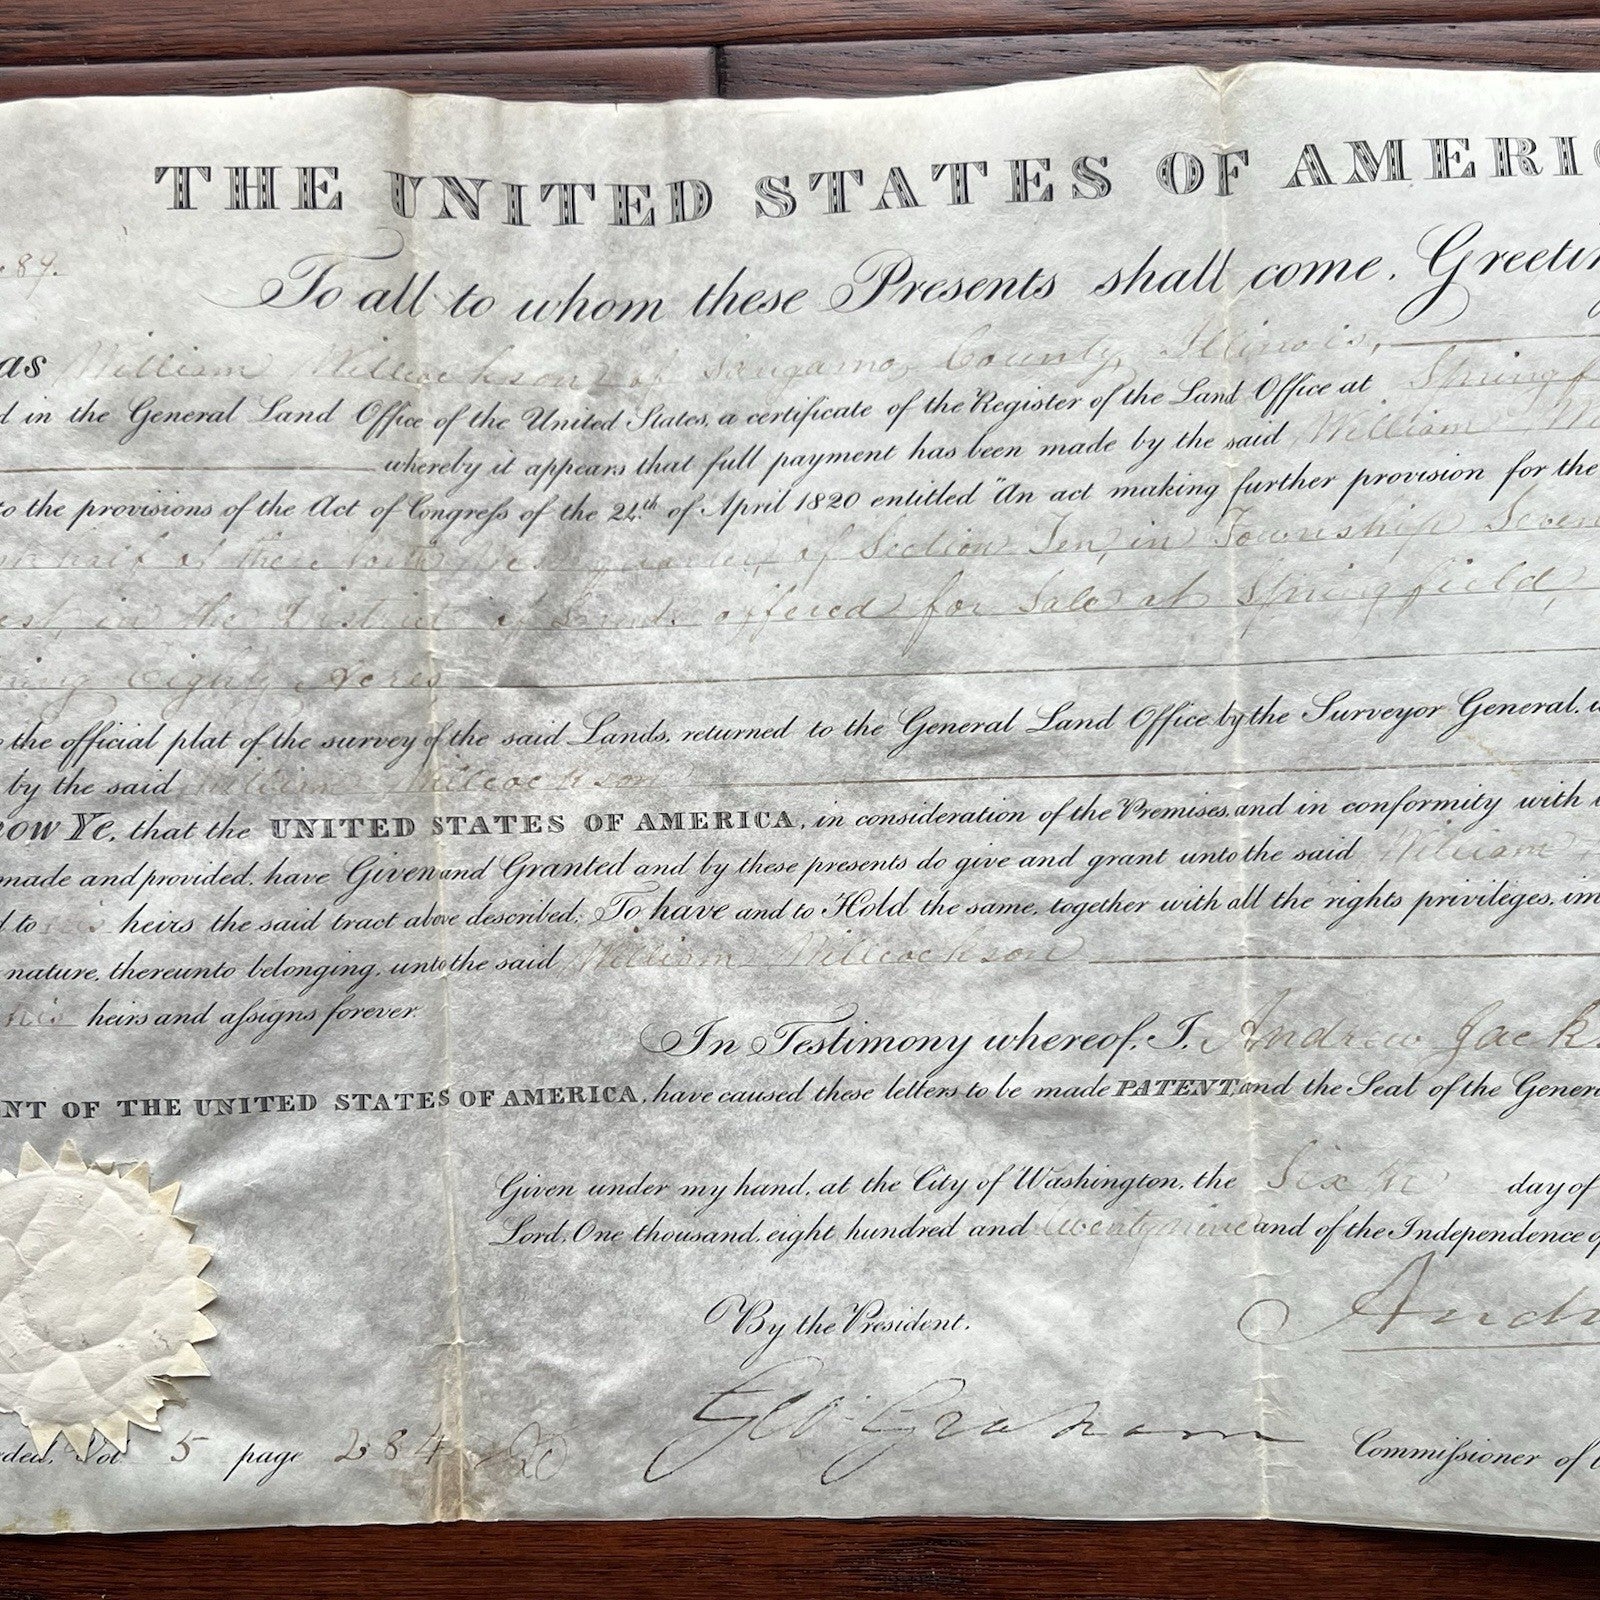 THE UNITED STATES OF AMERIC
89.
To all to whom these Presents shall come, Greetin
as William Willcockson of Sangamo County, Illinois,
d in the General Land Office of the United States, a certificate of the Register of the Land Office at Springf
whereby it appears that full payment has been made by the said William
to the provisions of the Act of Congreſs of the 24th of April 1820 entitled "An act making further provision for the
half of the quarter of Section Ten, in Township Seven
est, in the District of Lands offered for Sale at Springfield,
ning Eighty Acres
the official plat of the survey of the said Lands, returned to the General Land Office by the Surveyor General, w
by the said William Willcockson
ow Ye, that the UNITED STATES OF AMERICA, in consideration of the Premises, and in conformity with
made and provided, have Given and Granted and by these presents do give and grant unto the said William
d to his heirs the said tract above described; To have and to Hold the same, together with all the rights privileges, im
nature, thereunto belonging, unto the said William Willcockson
his heirs and aſsigns forever.
In Testimony whereof, I, Andrew Jack
NT OF THE UNITED STATES OF AMERICA, have caused these letters to be made PATENT, and the Seal of the Genera
Given under my hand, at the City of Washington, the Sixth day of
Lord, One thousand, eight hundred and twenty nine and of the Independence of
By the President. Andr
Geo: Graham
Commiſsioner of
rded, Vol 5 page 284